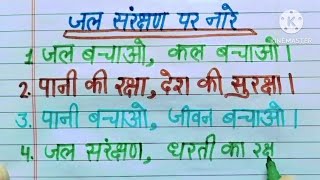 जल संरक्षण पर नारे
1. जल बचाओ, कल बचाओ।
2. पानी की रक्षा, देश की सुरक्षा।
3. पानी बचाओ, जीवन बचाओ।
4. जल संरक्षण, धरती का रक्ष
KINEMASTER